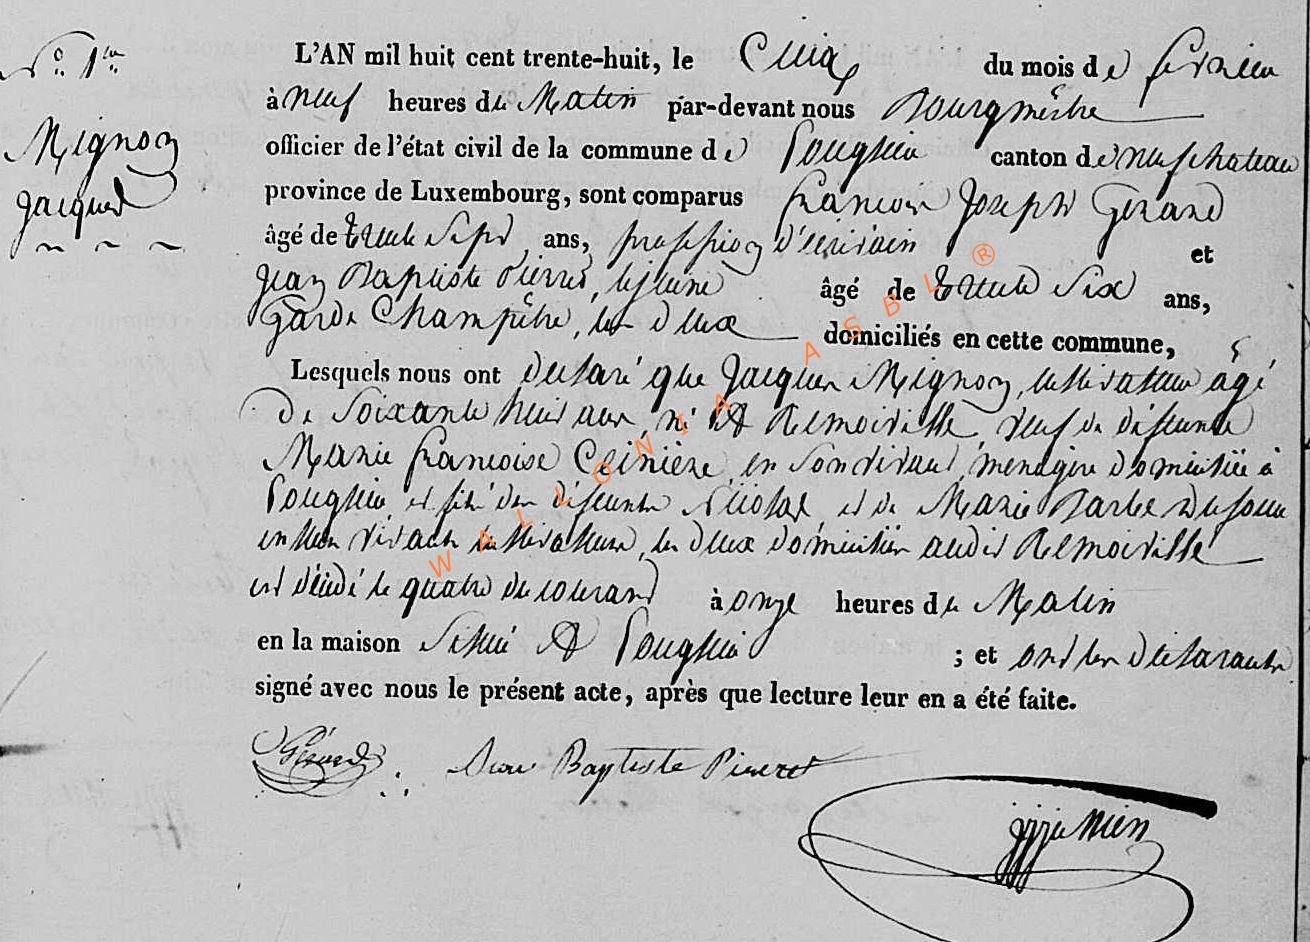 N° 1er
Mignon
Jacques
L'AN mil huit cent trente-huit, le Cinq du mois de fevrier
à neuf heures du Matin par-devant nous Bourgmêstre
officier de l'état civil de la commune de canton de neufchateau
province de Luxembourg, sont comparus francois Joseph Gerard
âgé de trente Sept ans, profession d'ecrivain et
Jean Baptiste Pierret, le jeune âgé de trente Six ans,
Garde Champêtre, les deux domiciliés en cette commune,
Lesquels nous ont declaré que Jacques Mignon, cultivateur agé
De Soixante huit ans, né A Remoiville, veuf de defeunte
Marie francoise en Son vivant, menagere domiciliée à
et fils des defeunts Nicolas, et de Marie Barbe
en leur vivant cultivateurs, les deux domiciliés audit Remoiville
est décédé le quatre du courant à onze heures du Matin
en la maison Située A ; et ont les déclarants
signé avec nous le présent acte, après que lecture leur en a été faite.
Gérard Jean Baptiste Pierret
WALLONIA ASBL ®